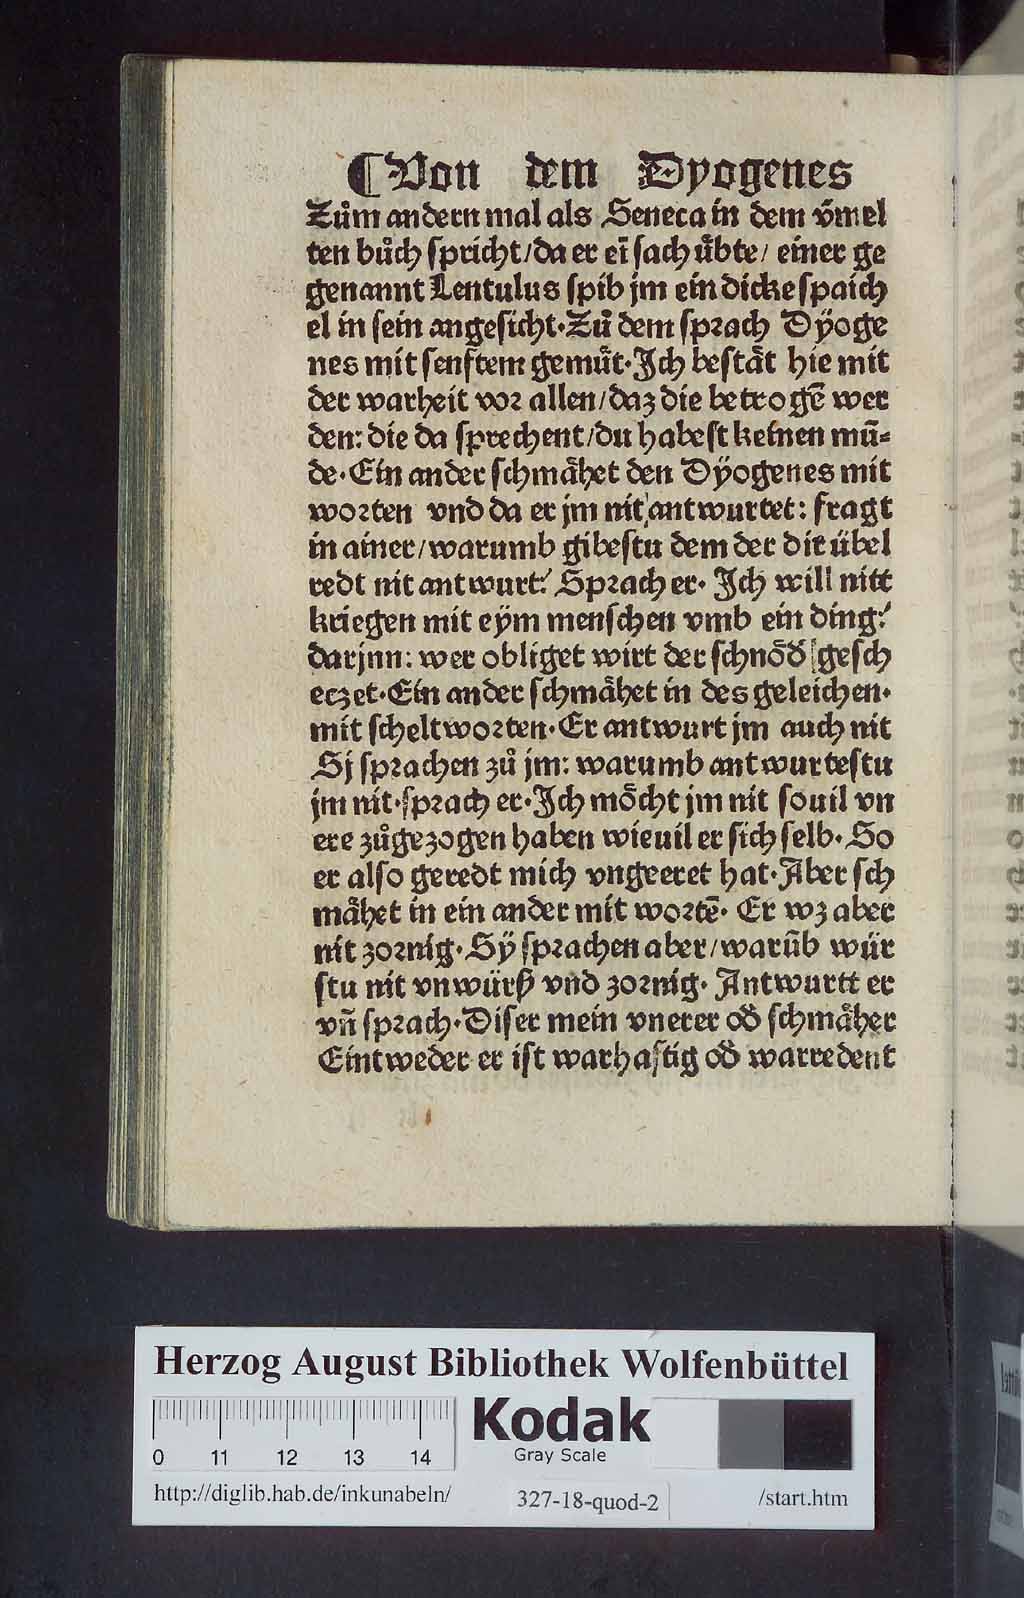 ¶ Von dem Dyogenes
Zuͦm andern mal als Seneca in dem v̄mel
ten buͦch spricht/da er eī sach uͤbte/ einer ge
genannt Lentulus spib jm ein dicke spaich
el in sein angesicht·Zuͦ dem sprach Dÿoge
nes mit senftem gemuͤt·Ich bestaͤt hie mit
der warheit vor allen/daz die betrogē wer
den: die da sprechent/du habest keinen mū⸗
de·Ein ander schmaͤhet den Dÿogenes mit
worten vnd da er jm nit antwurtet: fragt
in ainer/warumb gibestu dem der dir übel
redt nit antwurt? Sprach er· Ich will nitt
kriegen mit eym menschen vmb ein ding?
darjnn: wer obliget wirt der schnoͤd gesch
eczet·Ein ander schmaͤhet in des geleichen·
mit scheltworten·Er antwurt jm auch nit
Sj sprachen zuͦ jm: warumb antwurtestu
jm nit·sprach er·Ich moͤcht jm nit souil vn
ere zuͦgezogen haben wieuil er sich selb·So
er also geredt mich vngeeret hat·Aber sch
maͤhet in ein ander mit wortē· Er wz aber
nit zornig·Sÿ sprachen aber/warūb wür
stu nit vnwürß vnd zornig· Antwurtt er
vn̄ sprach·Diser mein vnerer od̄ schmaͤher
Eintweder er ist warhaftig od̄ warredent
Herzog August Bibliothek Wolfenbüttel
0 11 12 13 14
Kodak
Gray Scale
http://diglib.hab.de/inkunabeln/ 327-18-quod-2 /start.htm